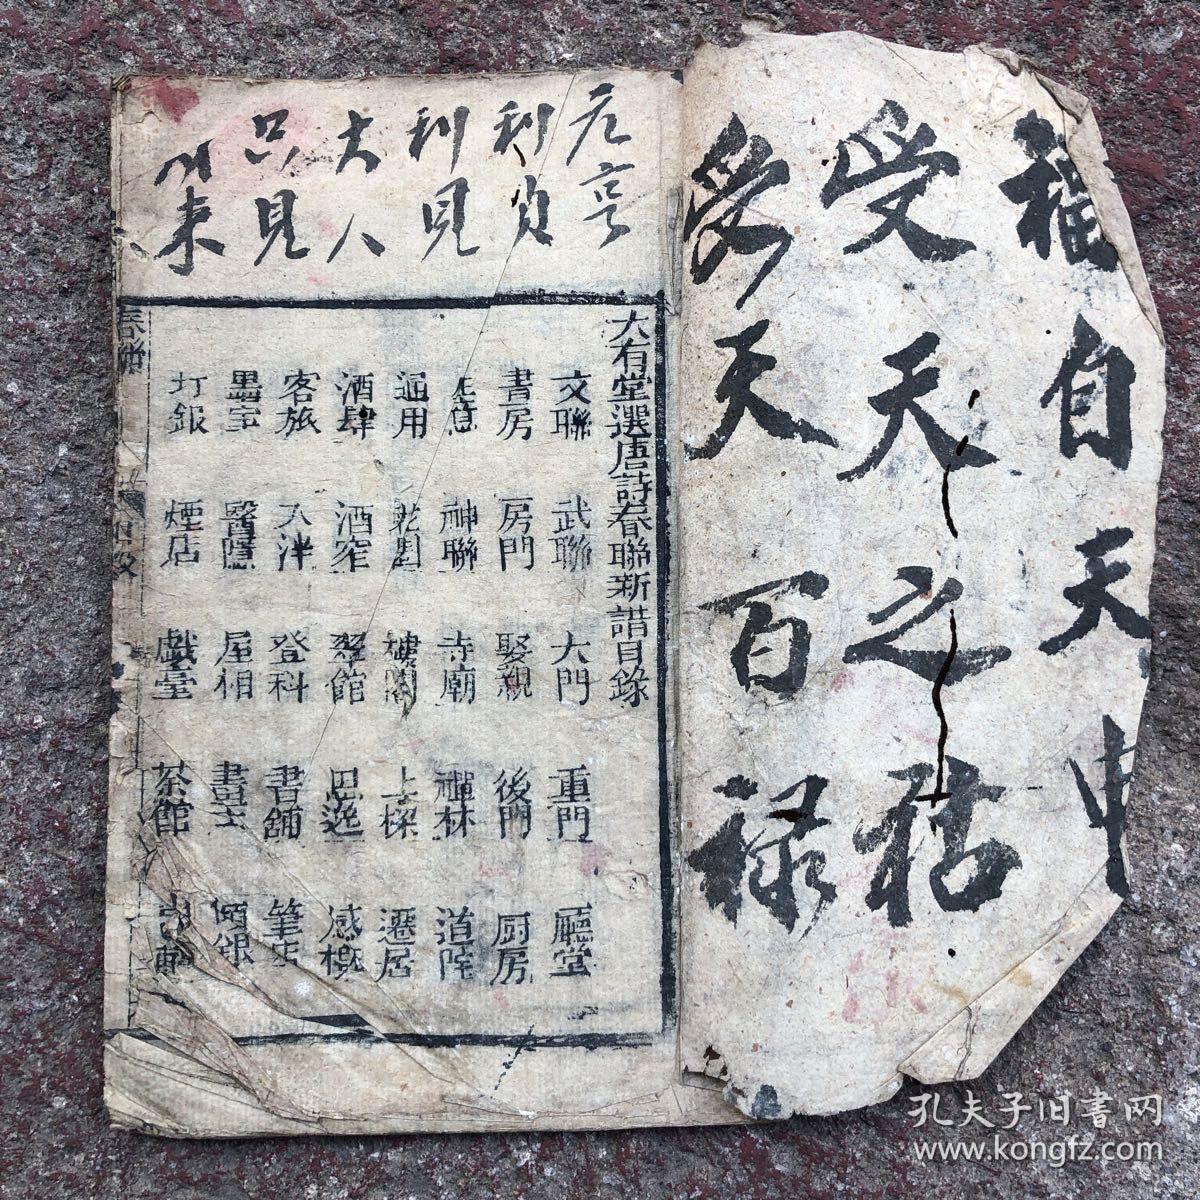 福自天申
受天之祜
受天百禄
元亨
利貞
利見
大人
只見
東
大有堂選唐詩春聯新譜目錄
文聯 武聯 大門 重門 廳堂
書房 房門 娶親 後門 厨房
生意 神聯 寺廟 禪林 道院
通用 乾男 樓閣 上樑 遷居
酒肆 酒窄 翠館 思逸 感慨
客旅 入泮 登科 書舖 筆店
墨宝 醫隱 屋相 畫士 傾銀
打銀 煙店 戲臺 茶館
春聯
孔夫子旧書网
www.kongfz.com